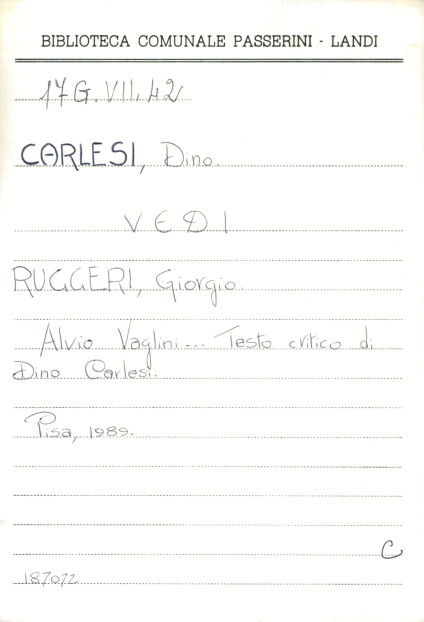 BIBLIOTECA COMUNALE PASSERINI - LANDI
17 G. VII. 42
CARLESI, Dino.
VEDI
RUGGERI, Giorgio.
Alvio Vaglini... Testo critico di
Dino Carlesi.
Pisa, 1989.
C
187072